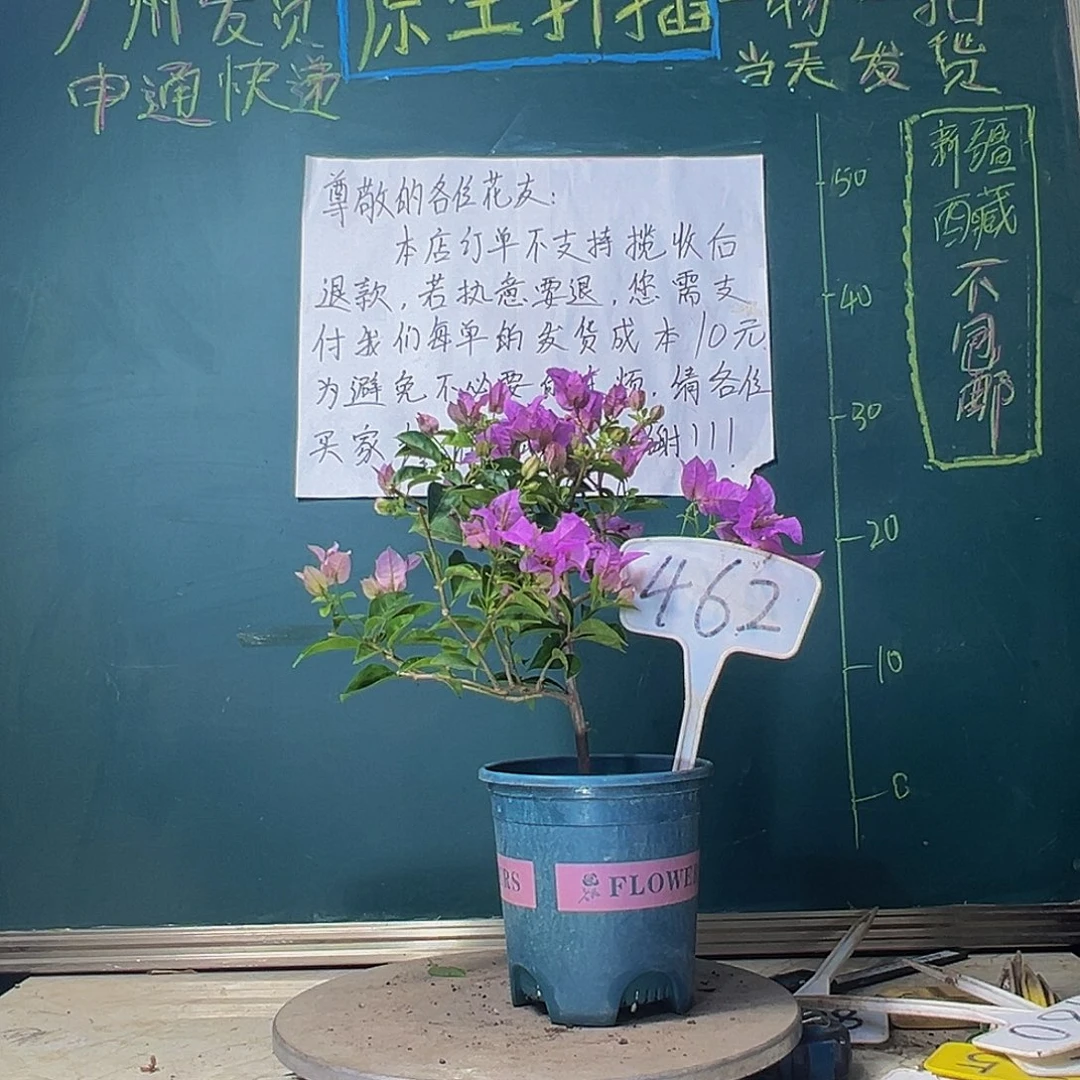 广州发货
原生扦插
一物一拍
申通快递
当天发货
尊敬的各位花友:
本店订单不支持揽收后
退款,若执意要退,您需支
付我们每单的发货成本10元
为避免不必要 烦,请各位
买家 谢!!!
50
40
30
20
10
0
新疆
西藏
不包邮
462
ERS
FLOWE
8
60
5